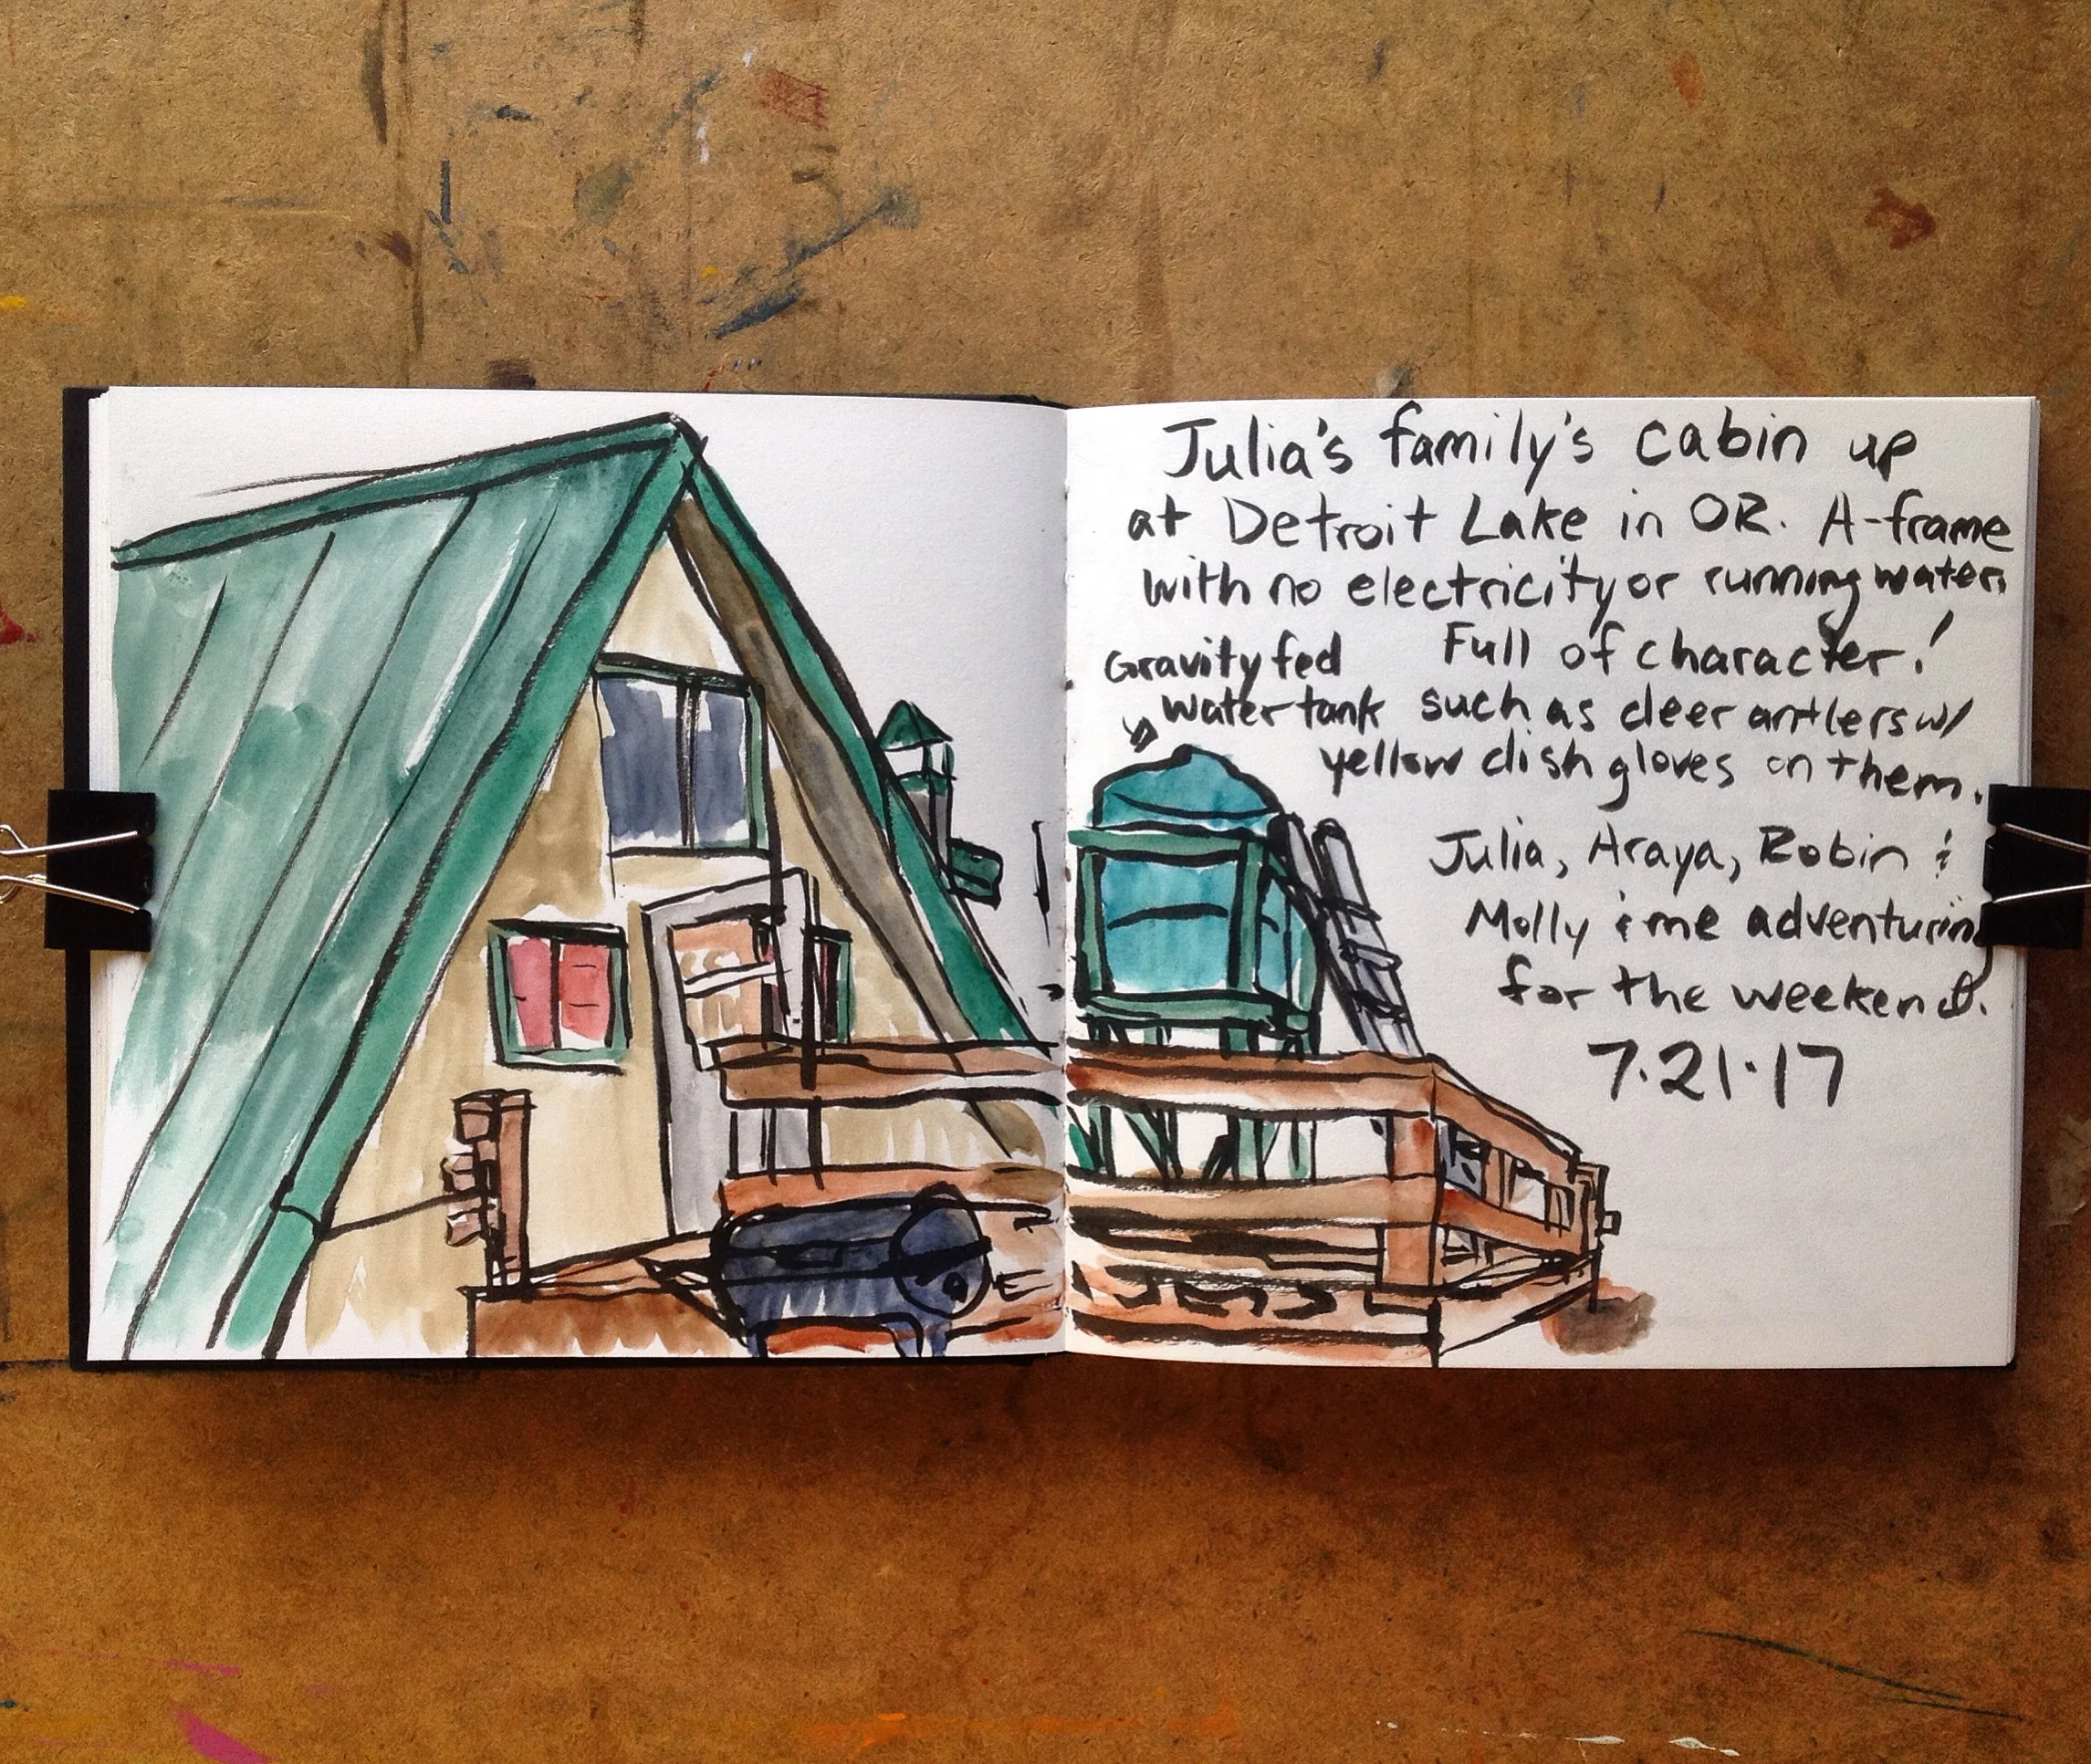 Julia's family's cabin up
at Detroit Lake in OR. A-frame
with no electricity or running water.
Full of character!
such as deer antlers w/
yellow dish gloves on them.
Gravity fed
water tank
Julia, Araya, Robin &
Molly & me adventuring
for the weekend.
7.21.17